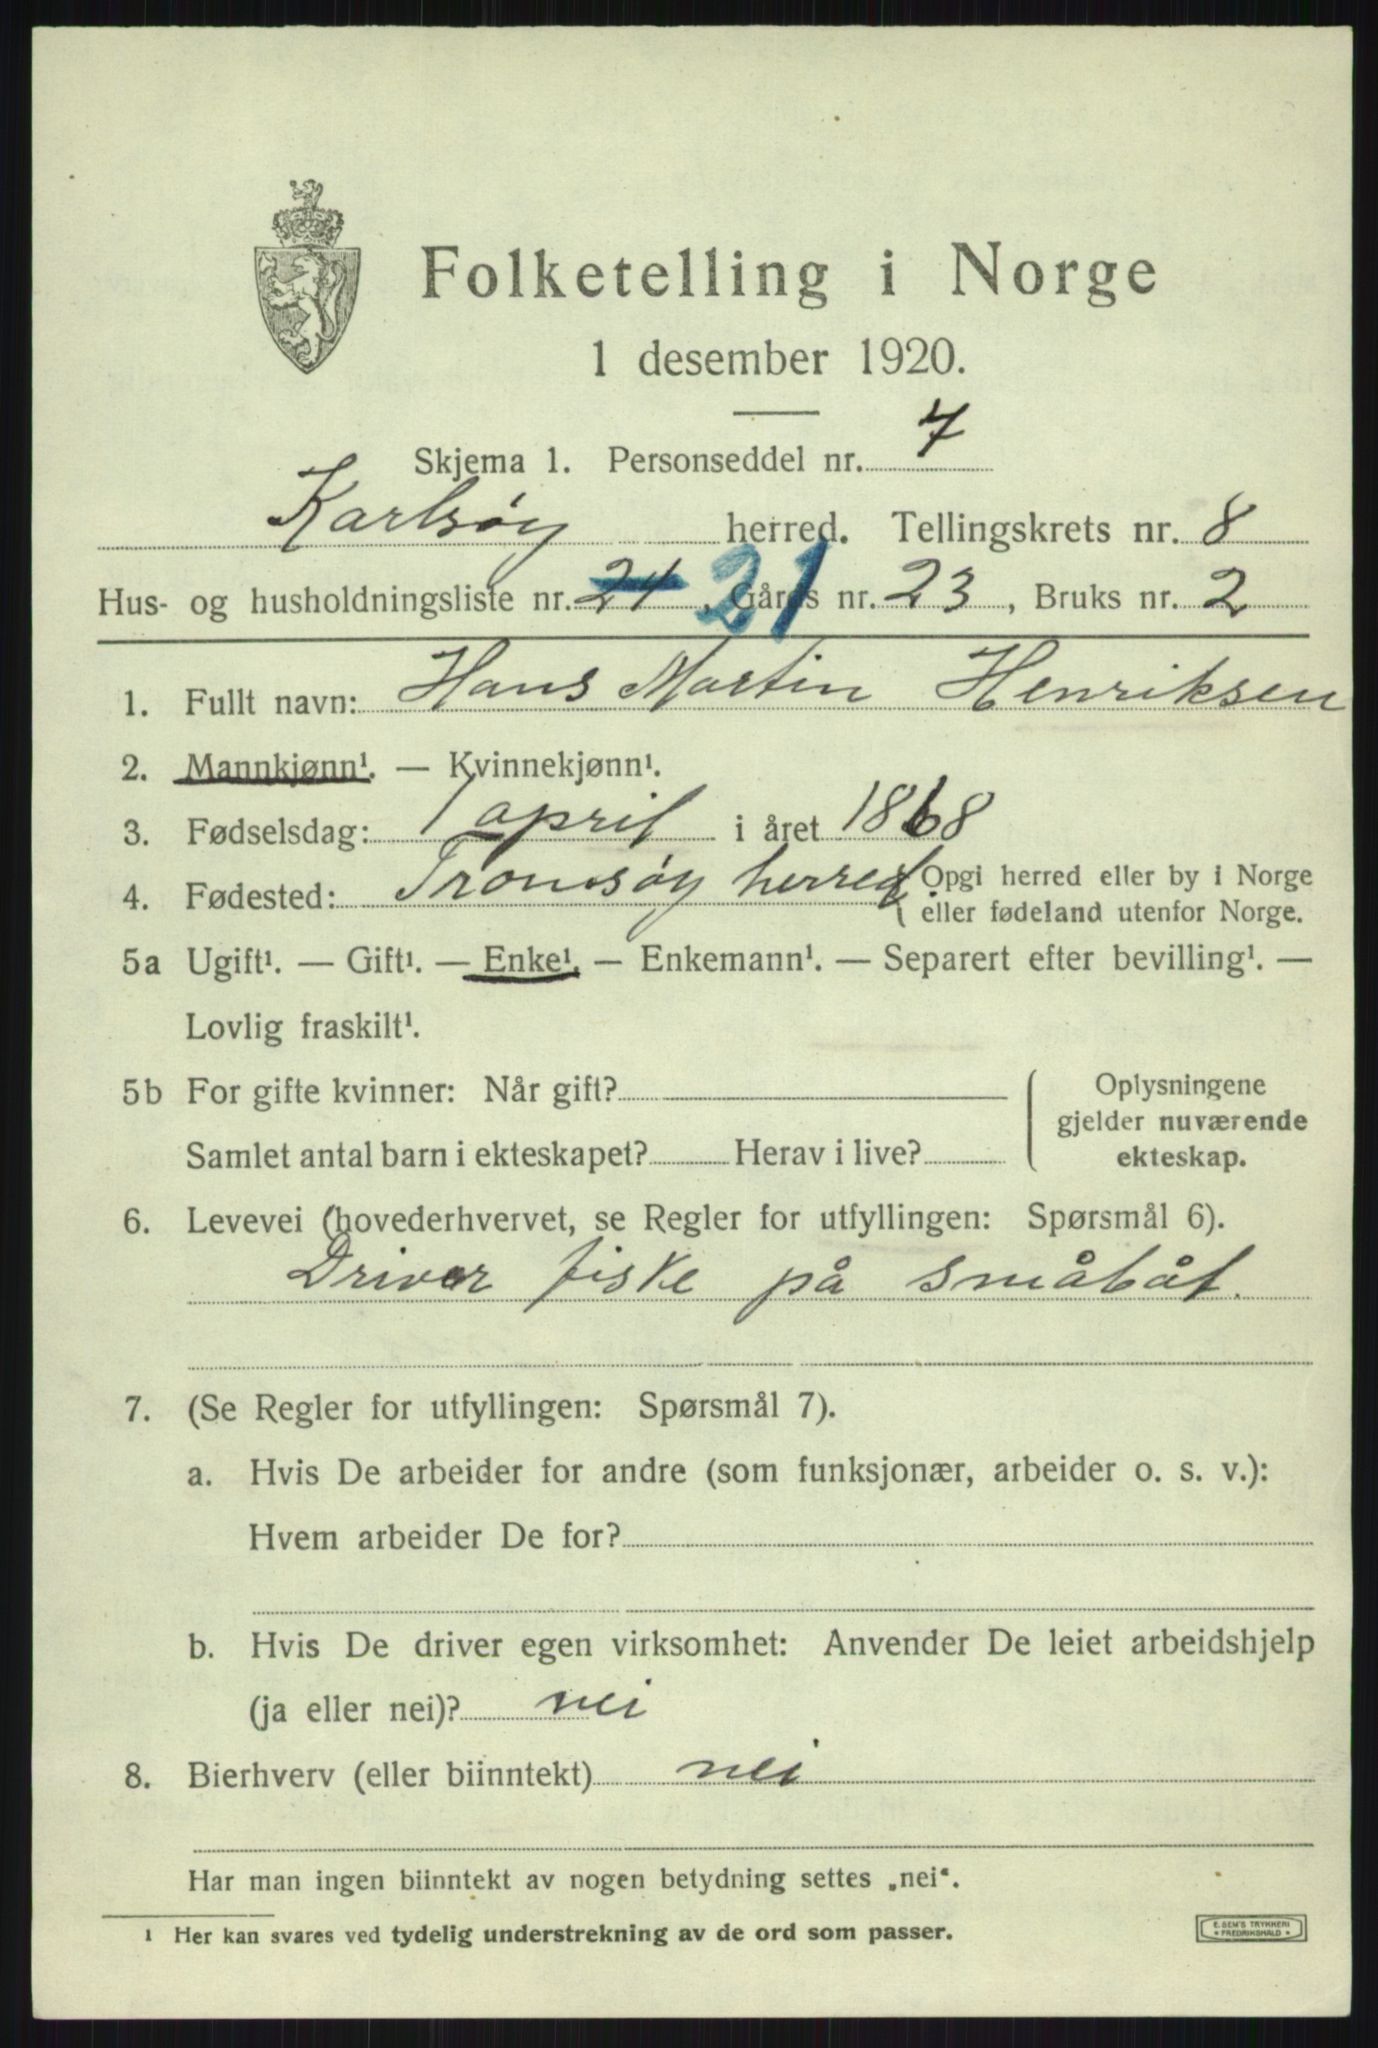 Folketelling i Norge
1 desember 1920.
Skjema 1. Personseddel nr. 7
Karlsøy herred. Tellingskrets nr. 8
Hus- og husholdningsliste nr. 24 21, Gårds nr. 23, Bruks nr. 2
1. Fullt navn: Hans Martin Henriksen
2. Mannkjønn¹. — Kvinnekjønn¹.
3. Fødselsdag: 1 april i året 1868
4. Fødested: Tromsøy herred { Opgi herred eller by i Norge
eller fødeland utenfor Norge.
5a Ugift¹. — Gift¹. — Enke¹. — Enkemann¹. — Separert efter bevilling¹. —
Lovlig fraskilt¹.
5b For gifte kvinner: Når gift?
Samlet antal barn i ekteskapet? Herav i live?
Oplysningene
gjelder nuværende
ekteskap.
6. Levevei (hovederhvervet, se Regler for utfyllingen: Spørsmål 6).
Driver fiske på småbåt.
7. (Se Regler for utfyllingen: Spørsmål 7).
a. Hvis De arbeider for andre (som funksjonær, arbeider o. s. v.):
Hvem arbeider De for?
b. Hvis De driver egen virksomhet: Anvender De leiet arbeidshjelp
(ja eller nei)? nei
8. Bierhverv (eller biinntekt) nei
Har man ingen biinntekt av nogen betydning settes „nei“.
¹ Her kan svares ved tydelig understrekning av de ord som passer.
E. SEM'S TRYKKERI
* FREDRIKSHALD *